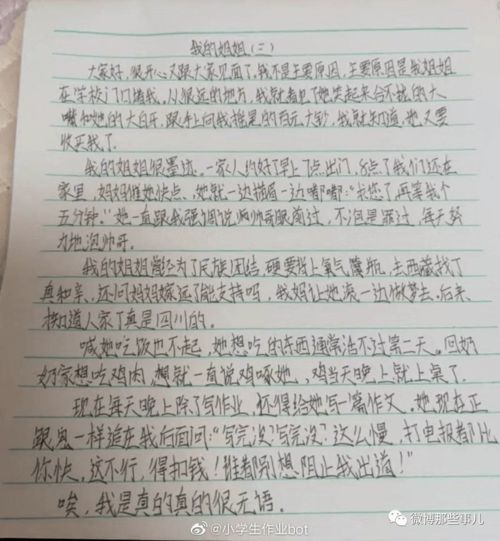 我的姐姐（二）
大家好，很开心又跟大家见面了，我不是主要原因，主要原因是我姐姐
在学校门口堵我。从很远的地方，我就看见了她笑起来合不拢的大
嘴和她的大白牙，跟手上向我摇晃的百元大钞，我就知道，她又要
收买我了。
我的姐姐很墨迹。一家人约好了早上7点出门，8点了我们还在
家里，妈妈催她快点，她就一边描眉一边嘟嘟：“快您了，再等我个
五分钟。”她一直跟我强调说帅哥眼前过，不泡是罪过，每天努
力地泡帅哥。
我的姐姐曾经为了民族团结，硬要背上氧气瓶，去西藏找了
真和亲，还问妈妈嫁远了能支持吗，我妈让她滚一边做梦去，后来
才知道人家丁真是四川的。
喊她吃饭也不起，她想吃的东西通常活不过第二天。回奶
奶家想吃鸡肉，想就一直说鸡啄她，鸡当天晚上就上桌了。
现在每天晚上除了写作业，还得给她写一篇作文。她现在正
跟鬼一样追在我后面问：“写完没？写完没？这么慢，打电报都比
你快，这不行，得扣钱！谁都别想阻止我出道！”
唉，我是真的真的很无语。
@小学生作业bot
微博那些事儿